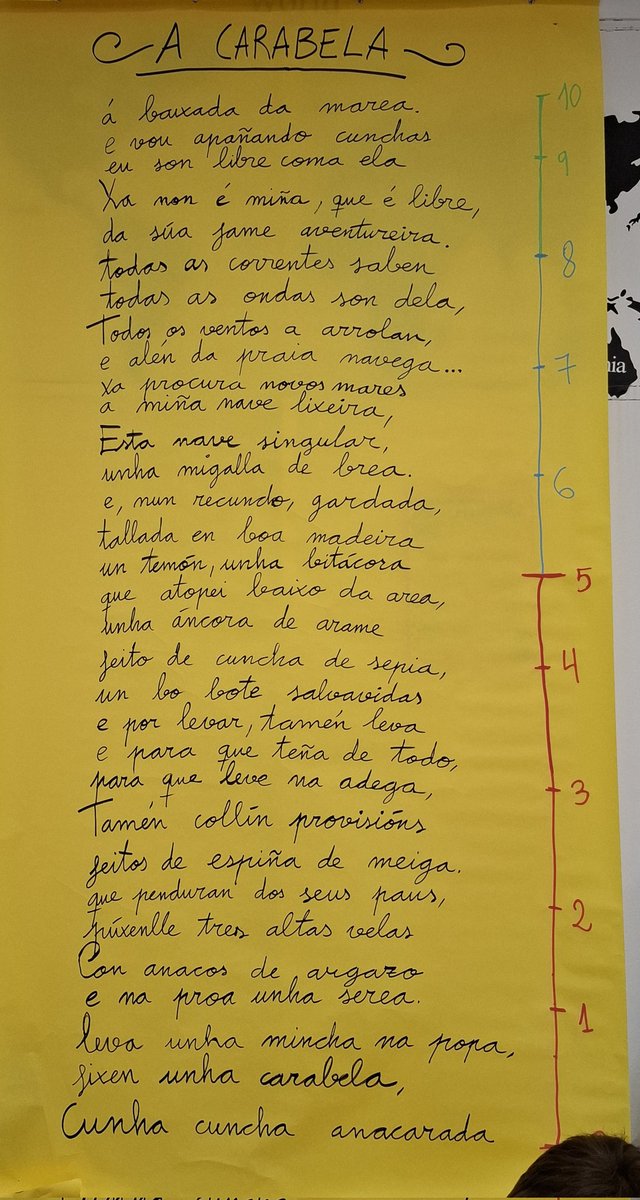 A CARABELA
á baixada da marea.
e vou apañando cunchas
eu son libre coma ela
Xa non é miña, que é libre,
da súa fame aventureira.
todas as correntes saben
todas as ondas son dela,
Todos os ventos a arrolan,
e alén da praia navega...
xa procura novos mares
a miña nave lixeira,
Esta nave singular,
unha migalla de brea.
e, nun recuncho, gardada,
tallada en boa madeira
un temón, unha bitácora
que atopei baixo da area,
unha áncora de arame
feito de cuncha de sepia,
un bo bote salvavidas
e por levar, tamén leva
e para que teña de todo,
para que leve na adega,
Tamén collín provisións
feitos de espiña de meiga.
que penduran dos seus paus,
púxenlle tres altas velas
Con anacos de argazo
e na proa unha serea.
leva unha mincha na popa,
fixen unha carabela,
Cunha cuncha anacarada
10
9
8
7
6
5
4
3
2
1
nia